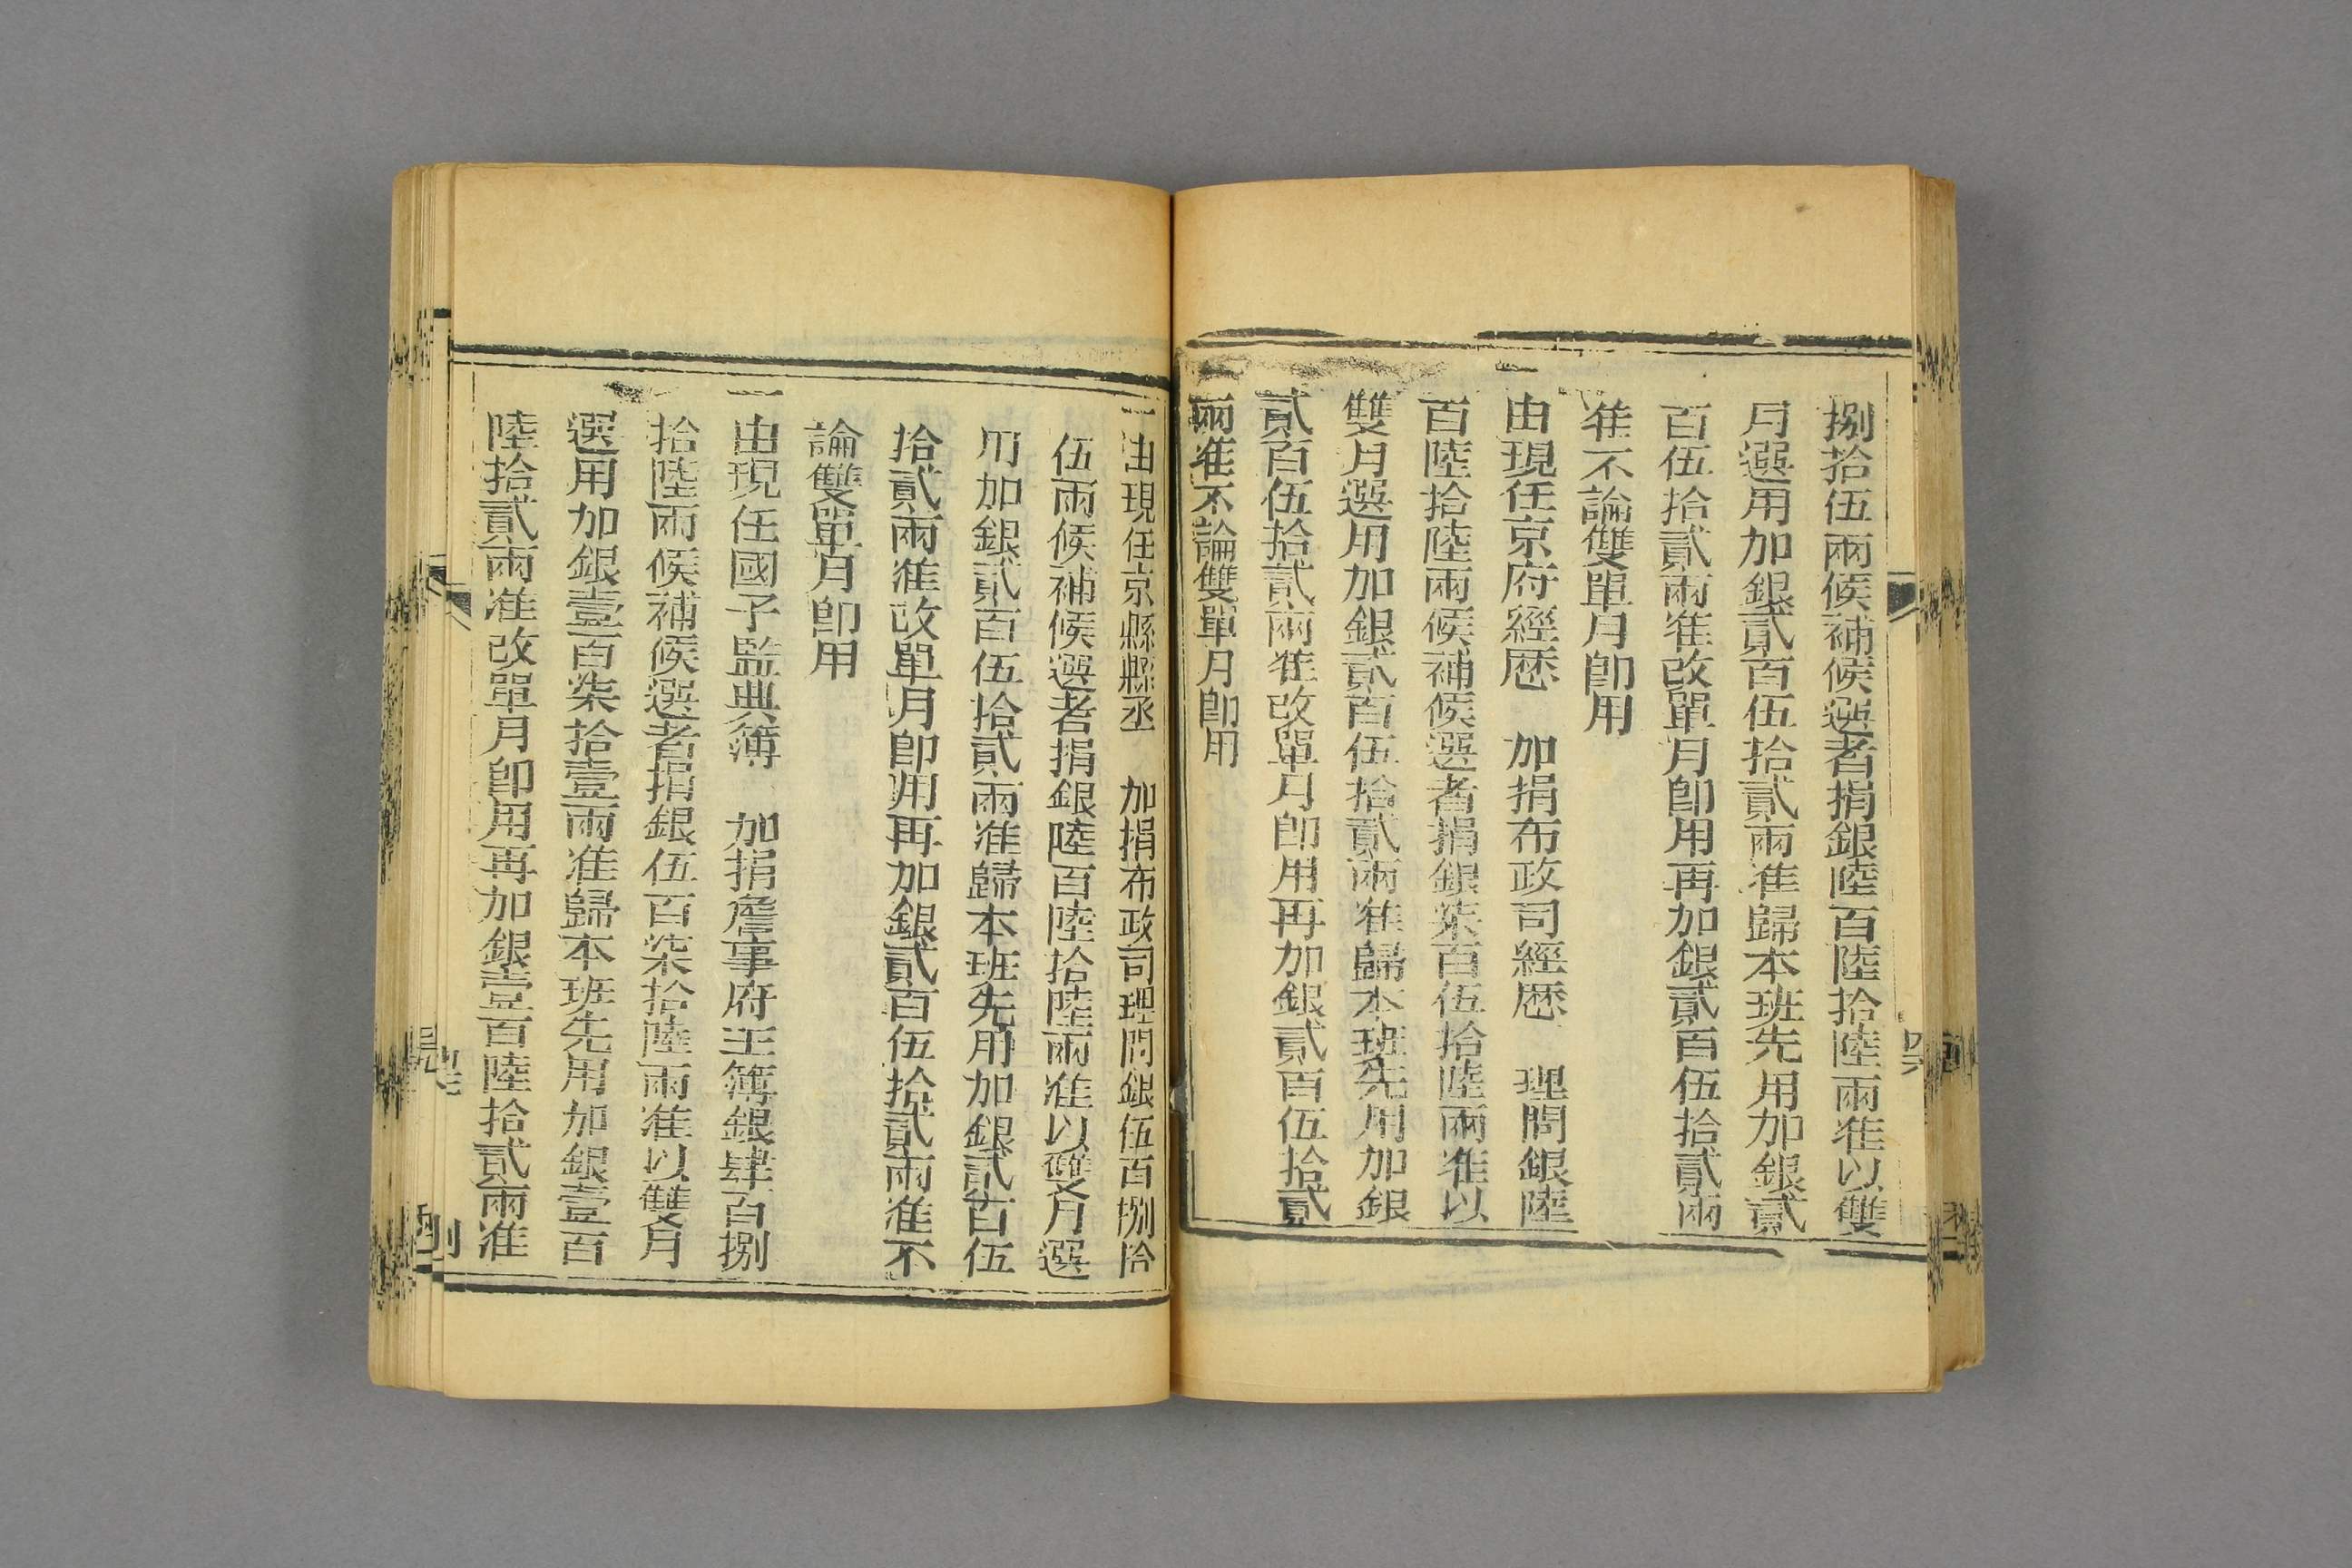 捌拾伍兩候補候選者捐銀陸百陸拾陸兩准以雙
月選用加銀貳百伍拾貳兩准歸本班先用加銀貳
百伍拾貳兩准改單月卽用再加銀貳百伍拾貳兩
准不論雙單月卽用
一由現任京府經歷 加捐布政司經歷 理問銀陸
百陸拾陸兩候補候選者捐銀柒百伍拾陸兩准以
雙月選用加銀貳百伍拾貳兩准歸本班先用加銀
貳百伍拾貳兩准改單月卽用再加銀貳百伍拾貳
兩准不論雙單月卽用
一由現任京縣縣丞 加捐布政司理問銀伍百捌拾
伍兩候補候選者捐銀陸百陸拾陸兩准以雙月選
用加銀貳百伍拾貳兩准歸本班先用加銀貳百伍
拾貳兩准改單月卽用再加銀貳百伍拾貳兩准不
論雙單月卽用
一由現任國子監典簿 加捐詹事府主簿銀肆百捌
拾陸兩候補候選者捐銀伍百柒拾陸兩准以雙月
選用加銀壹百柒拾壹兩准歸本班先用加銀壹百
陸拾貳兩准改單月卽用再加銀壹百陸拾貳兩准